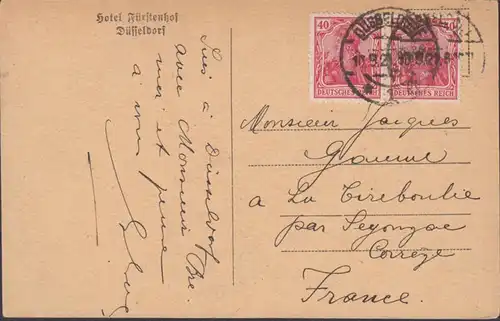 Hotel Fürstenhof
Düsseldorf
Suis à Düsseldorf
avec Monsieur Bre
et pense
à
40
DEUTSCHES REICH
DEUTSCHES REICH
DÜSSELDORF
Monsieur Jacques
à La Tireboulie
par Seyonzac
Corrèze
France.